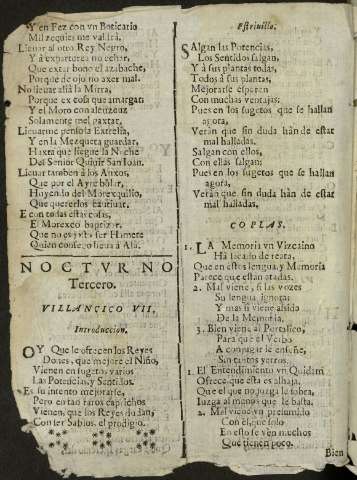 Y en Fez con vn Boticario
Mil zequies me valdrà,
Lleuar al otro Rey Negro,
Y à expartorea no echar,
Que extar bono el azabache,
Porque de ojo no axer mal.
No lleuar allà la Mirra,
Porque ex cosa que amargar:
Y el Moro con alcuzcuz
Solamente me paxtar.
Lleuarme penso la Extrella,
Y en la Mezqueta guardar,
Haxta que llegue la Noche
Del Senior Quiuir San Ioan.
Lleuar tambien à los Auxos,
Que por el Ayre bolar,
Huyendo del Morexquillo,
Que quererlos cautiuar,
E con todas estas cosas,
El Morexco baptizar,
Que no es juxto ser Hamete
Quien consigo lleua à Alà.
NOCTVRNO
Tercero.
VILLANCICO VII.
Introduccion.
OY Que le ofrecen los Reyes
Dones, que mejore el Niño,
Vienen en sugetos varios
Las Potencias, y Sentidos.
Es su intento mejorarse,
Pero en tan raros caprichos
Vienen, que los Reyes dudan,
Con ser Sabios, el prodigio.
Estriuillo.
SAlgan las Potencias,
Los Sentidos salgan,
Y à sus plantas todas,
Todos à sus plantas,
Mejorarse esperan
Con muchas ventajas:
Pues en los sugetos que se hallan
agora,
Veràn que sin duda hàn de estar
mal halladas.
Salgan con ellos,
Con ellas salgan:
Pues en los sugetos que se hallan
agora,
Veràn que sin duda hàn de estar
mal halladas.
COPLAS.
1. LA Memoria vn Vizcaino
Hà sacado de reata,
Que en estos lengua, y Memoria
Parece que estàn atadas.
2. Mal viene, si las vozes
Su lengua ignora:
Y mas si viene assido
De la Memoria.
3. Bien viene, al Portalico,
Para que el Verbo
A conjugar le enseñe,
Sin tantos yerros.
1. El Entendimiento vn Quidam
Ofrece, que esta es alhaja,
Que el que no juzga le sobra,
Iuzga al menos que le basta.
2. Mal viene vn presumido
Con èl, que solo
En esto se vèn muchos
Que tienen poco.
Bien